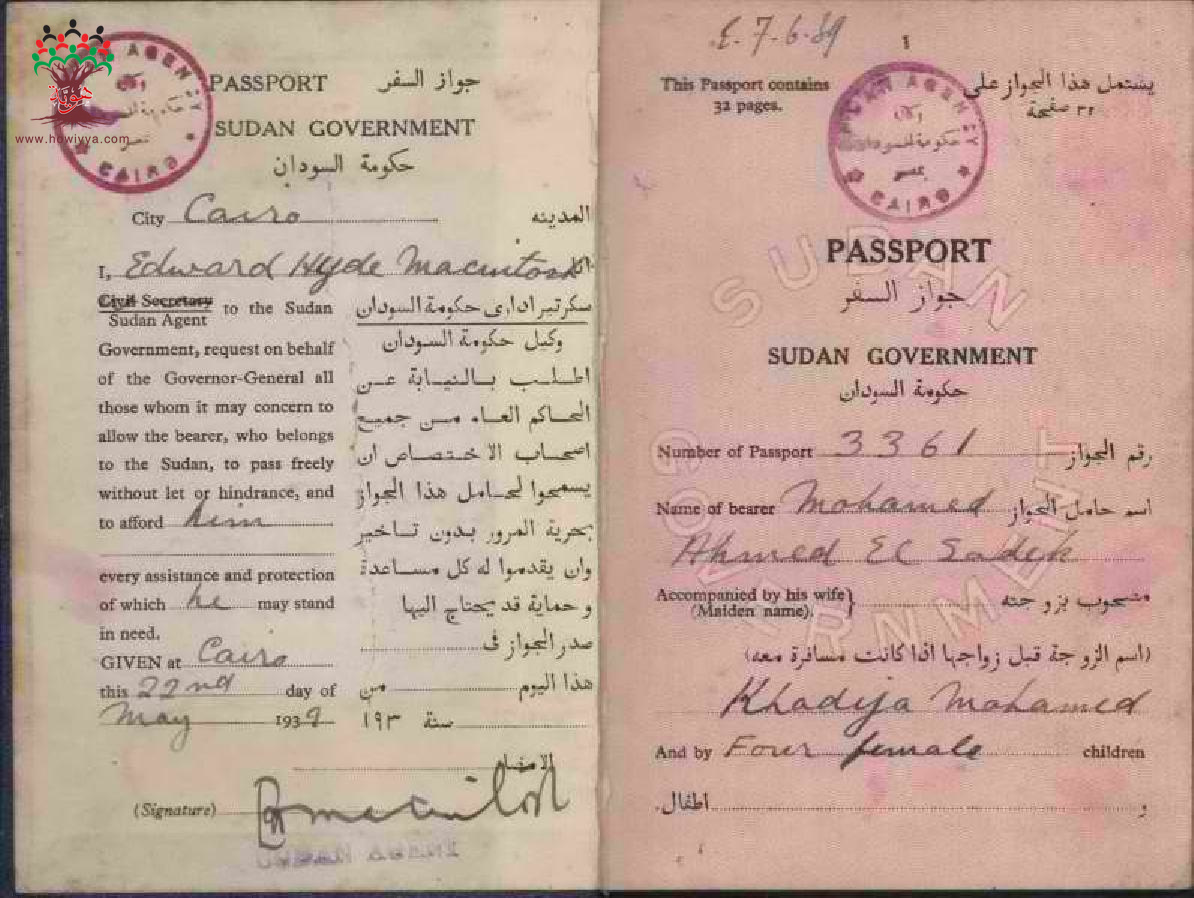 PASSPORT جواز السفر
SUDAN GOVERNMENT
حكومة السودان
SUDAN AGENCY
CAIRO
www.howiyya.com
City Cairo المدينه
I, Edward Hyde Macintosh انا
Civil Secretary
Sudan Agent
to the Sudan
Government, request on behalf
of the Governor-General all
those whom it may concern to
allow the bearer, who belongs
to the Sudan, to pass freely
without let or hindrance, and
to afford him
every assistance and protection
of which he may stand
in need.
GIVEN at Cairo
this 22nd day of
May 1939
سكرتير ادارى حكومة السودان
وكيل حكومة السودان
اطلب بالنيابة عن
الحاكم العام من جميع
اصحاب الاختصاص ان
يسمحوا لحامل هذا الجواز
بحرية المرور بدون تاخير
وان يقدموا له كل مساعدة
و حماية قد يحتاج اليها
صدر الجواز فى
هذا اليوم من
سنة ١٩٣
الامضاء
(Signature) Macintosh
E. 7-6-39
1
This Passport contains
32 pages.
يشتمل هذا الجواز على
٣٢ صفحة
SUDAN AGENCY
حكومة السودان
بمصر
CAIRO
PASSPORT
جواز السفر
SUDAN GOVERNMENT
حكومة السودان
SUDAN GOVERNMENT
Number of Passport 3361 رقم الجواز
Name of bearer Mohamed اسم حامل الجواز
Ahmed El Sadek
Accompanied by his wife
(Maiden name). مصحوب بزوجته
(اسم الزوجة قبل زواجها اذا كانت مسافرة معه)
Khadija Mohamed
And by Four female children
و اطفال.